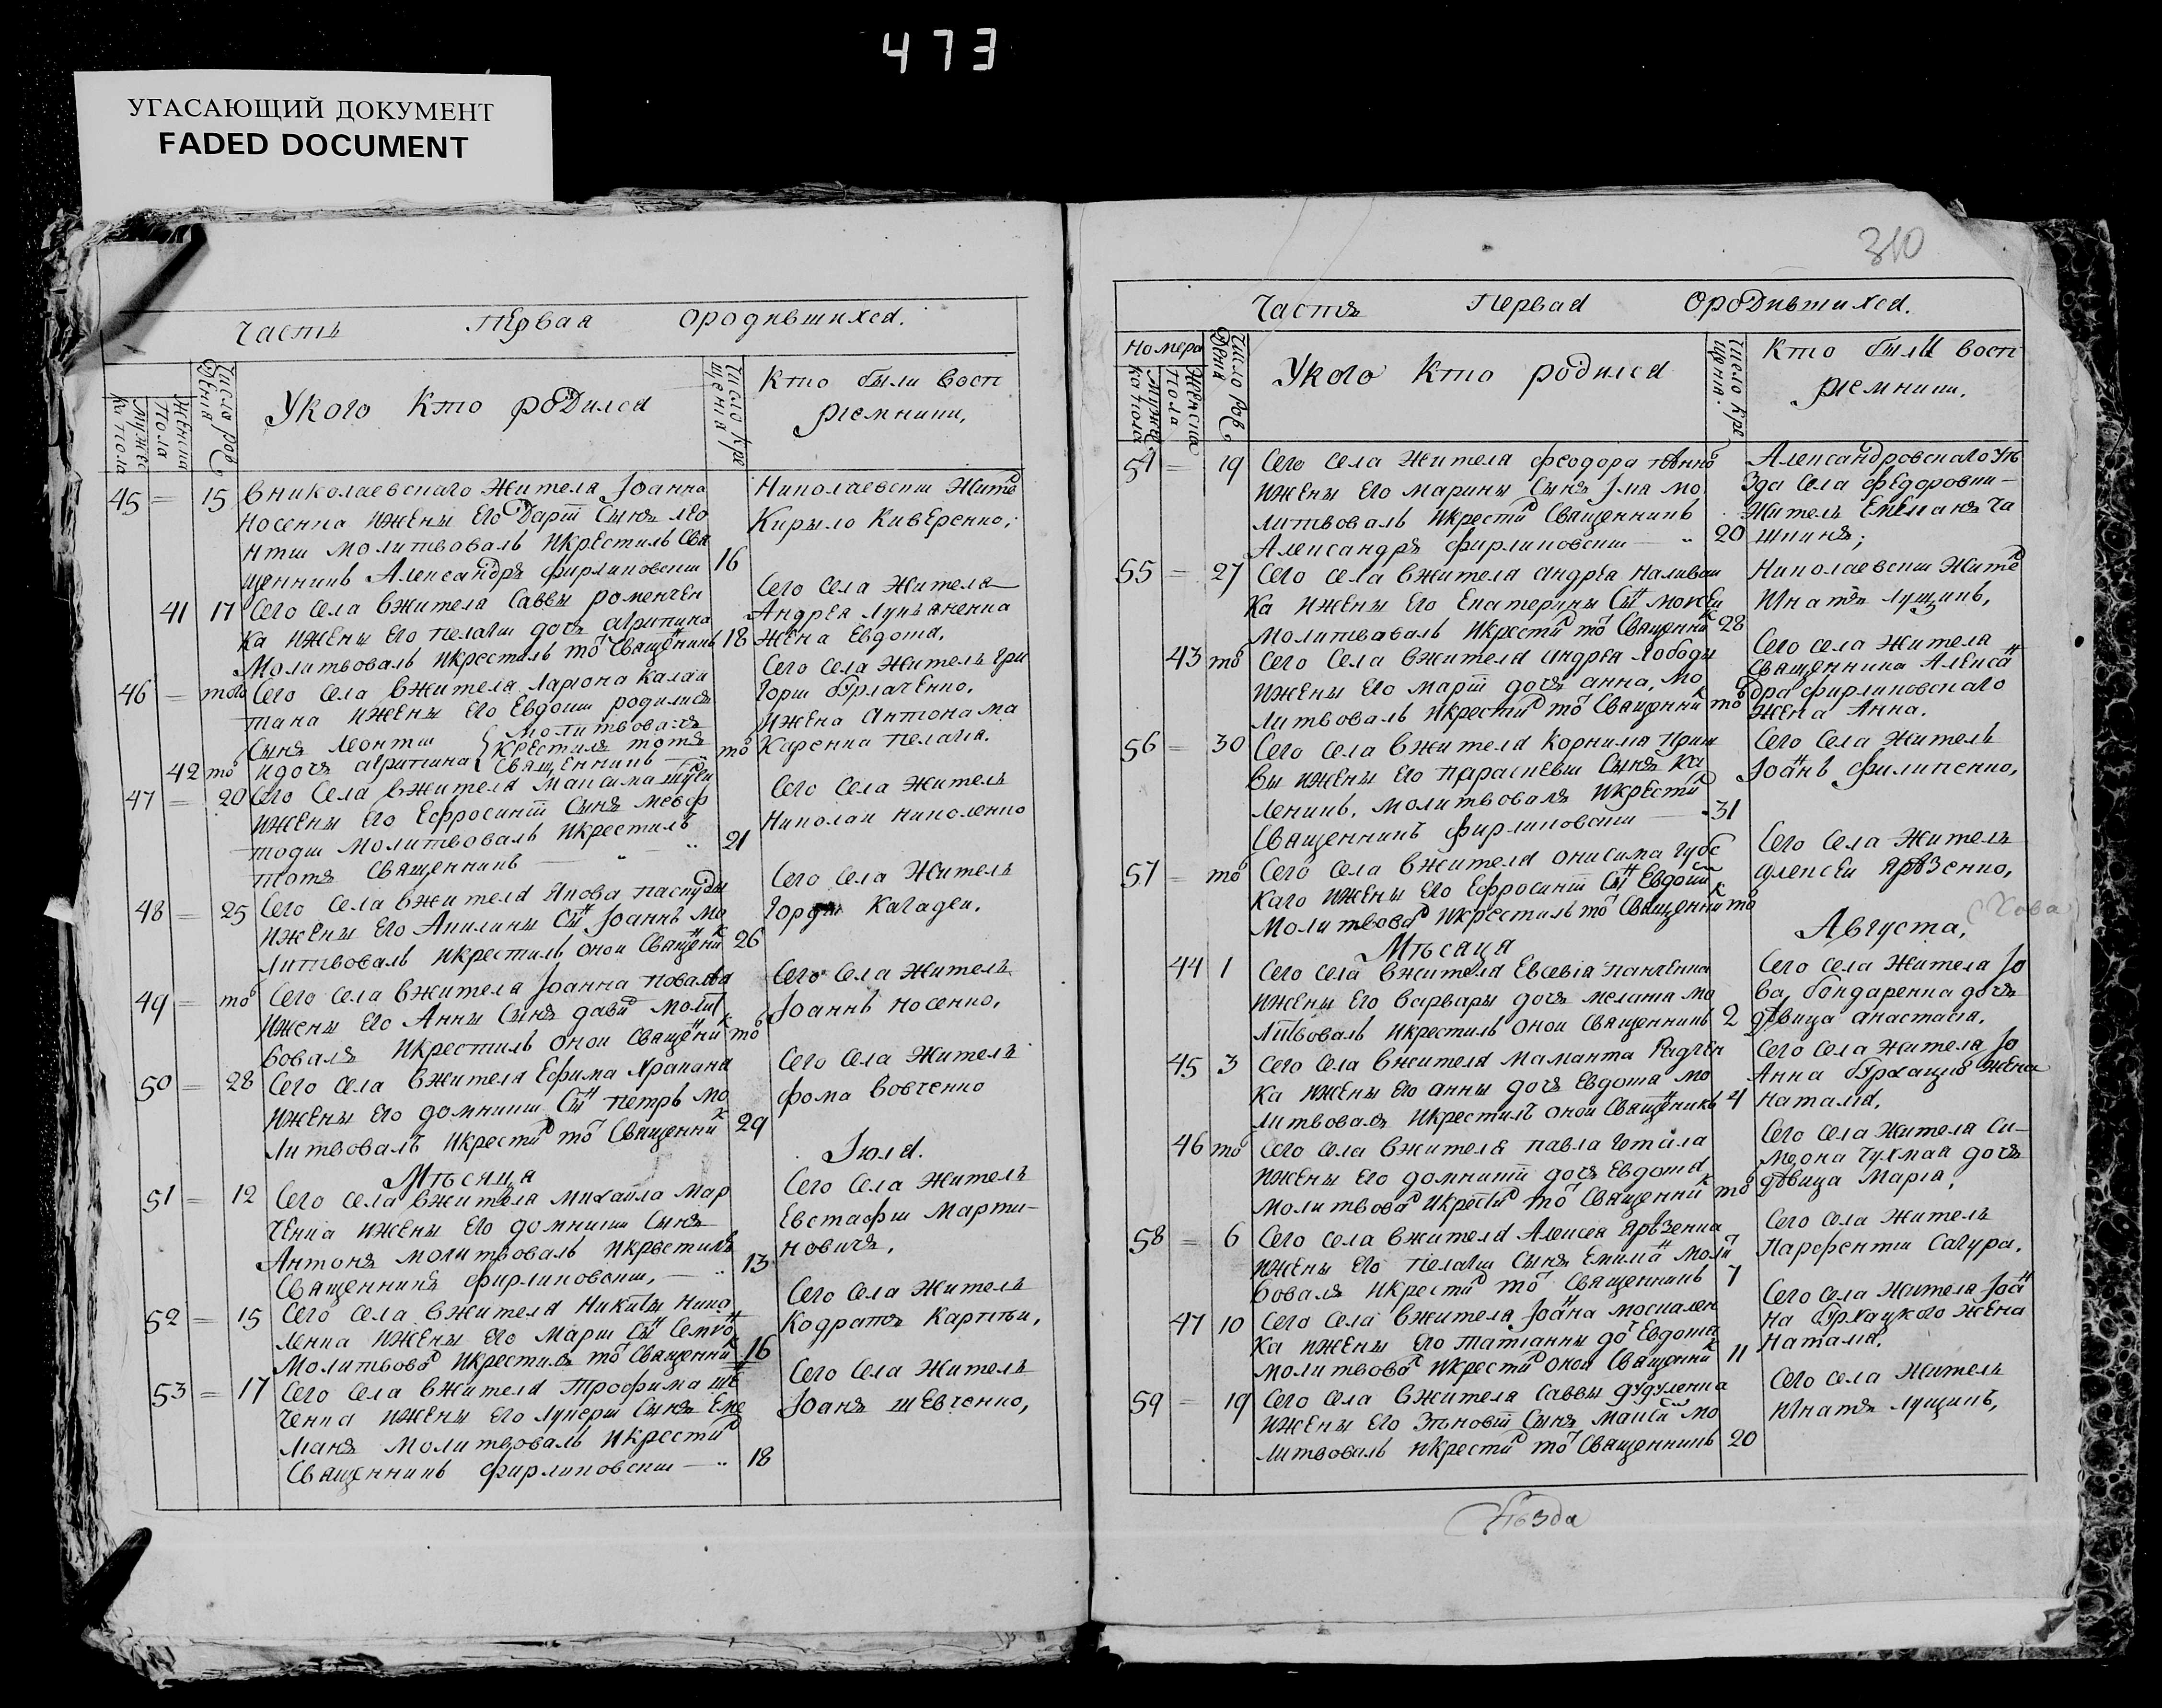 473
УГАСАЮЩИЙ ДОКУМЕНТ
FADED DOCUMENT
Часть Первая Ородившихся.
Число рож
дения
Мужес
ка пола
Женска
пола
Укого Кто родился
Число кре
щенія
Кто были восп
ріемники,
45 = 15 Вниколаевскаго Жителя Іоанна
Носенка ижены Его Даріи Сынъ лео
нтіи молитвовалъ икрестилъ Свя
щенникъ Александръ фирликовскіи 16
Николаевскіи Жите
Кирыло Киверенко,
41 17 Сего Села вжителя Саввы роменчен
ка ижены его пелагіи дочь агрипина
Молитвовалъ икрестилъ то Священикъ 18
Сего села жителя
Андрея Лукьяненка
жена Евдокія,
46 = того Сего села вжителя Ларіона Калаи
тана ижены Его Евдокіи родилися
Сынъ леонтіи молитвовалъ
крестилъ тотъ
42 то идочь агрипина Священникъ то
Сего села житель гри
горіи бурлаченко,
ижена антона ма
каренка пелагія.
47 = 20 Сего Села вжителя Максима
ижены его Ефросиніи Сынъ меѳоф
тодіи молитвовалъ икрестилъ
тотъ Священникъ 21
Сего села житель
Николаи николенко
48 = 25 Сего села вжителя Якова паскуды
ижены Его Акилины Сы Іоаннъ мо
литвовалъ икрестилъ онои Священик 26
Сего села житель
Гордіи Качадеи,
49 = то Сего села вжителя Іоанна
ижены Его Анны Сынъ дави молит
вовалъ икрестилъ онои Священик то
Сего села житель
Іоаннъ носенко,
50 = 28 Сего села вжителя Ефима Храпача
ижены Его домникіи Сы петръ мо
литвовалъ икрести то Священик 29
Сего села житель
фома вовченко
Мѣсяца Іюля.
51 = 12 Сего села вжителя михаила мар
ченка ижены Его домникіи Сынъ
Антонъ молитвовалъ икрестилъ
Священникъ фирликовскіи, 13
Сего села житель
Евстафіи Марти-
новичъ,
52 = 15 Сего села вжителя Никиты Нико
ленка ижены Его маріи Сы Семіо
молитвова икрестилъ то Священик 16
Сего села житель
Кодратъ Карпѣи,
53 = 17 Сего села вжителя Трофима ше
ченка ижены его Лукеріи Сынъ Еме
ліанъ молитвовалъ икрести
Священникъ фирликовскіи 18
Сего села житель
Іоанъ шевченко,
310
Часть Первая Ородившихся.
Номера
Мужес
ка пола
Женска
пола
Число рож
денія
Укого Кто родился
Число кре
щенія.
Кто были восп
ріемники,
54 = 19 Сего села жителя феодора
ижены Его марины Сынъ Iлія мо
литвовалъ икрести Священникъ
Александръ фирликовскіи 20
Александровскаго уѣ
зда села федоровки
житель Емеліанъ ча
шкинъ;
55 = 27 Сего села вжителя андрея наливаи
ка ижены Его Екатерины Сы моисеи
молитвовалъ икрести то Священик 28
Николаевскіи жите
Игнатъ лущикъ,
43 то Сего села вжителя андрея лободы
ижены Его марѳи дочь анна, мо
литвовалъ икрести то Священик то
Сего села жителя
Священника Алекса
дра фирликовскаго
жена Анна.
56 = 30 Сего села вжителя корнилія
вы ижены Его параскевіи Сынъ ка
леникъ, молитвовалъ икрести
Священникъ фирликовскіи 31
Сего села житель
Іоанъ филипенко,
57 = то Сего села вжителя онисима губс
каго ижены Его Ефросиніи Сы Евдоки
молитвова икрестилъ то Священик то
Сего села житель
алексеи ярѣзенко,
Мѣсяца Августа,
44 1 Сего села вжителя Евсевія панченка
ижены Его варвары дочь меланія мо
литвовалъ икрестилъ онои Священникъ 2
Сего села жителя Іо
ва, бондаренка дочь
дѣвица анастасія.
45 3 Сего села вжителя маманта Радчен
ка ижены Его анны дочь Евдокія мо
литвовалъ икрестилъ онои Священикъ 4
Сего села жителя Іо
анна жена
наталія.
46 то Сего села вжителя павла
ижены Его домникіи дочь Евдокія
молитвова икрести то Священик то
Сего села жителя Си-
меона чухмая дочь
дѣвица марія,
58 = 6 Сего села вжителя Алексея ярѣзенка
ижены Его пелагіи Сынъ Емилia моли
вовалъ икрести то Священникъ 7
Сего села житель
Парфентіи Сагура,
47 10 Сего села вжителя Іоанна москален
ка ижены Его татіанны до Евдокія
молитвова икрести онои Священик 11
Сего села жителя Іоа
на жена
наталія.
59 = 19 Сего села вжителя саввы дудуленка
ижены Его зѣновіи Сынъ маисіи мо
литвовалъ икрести то Священникъ 20
Сего села житель
игнатъ лущикъ,